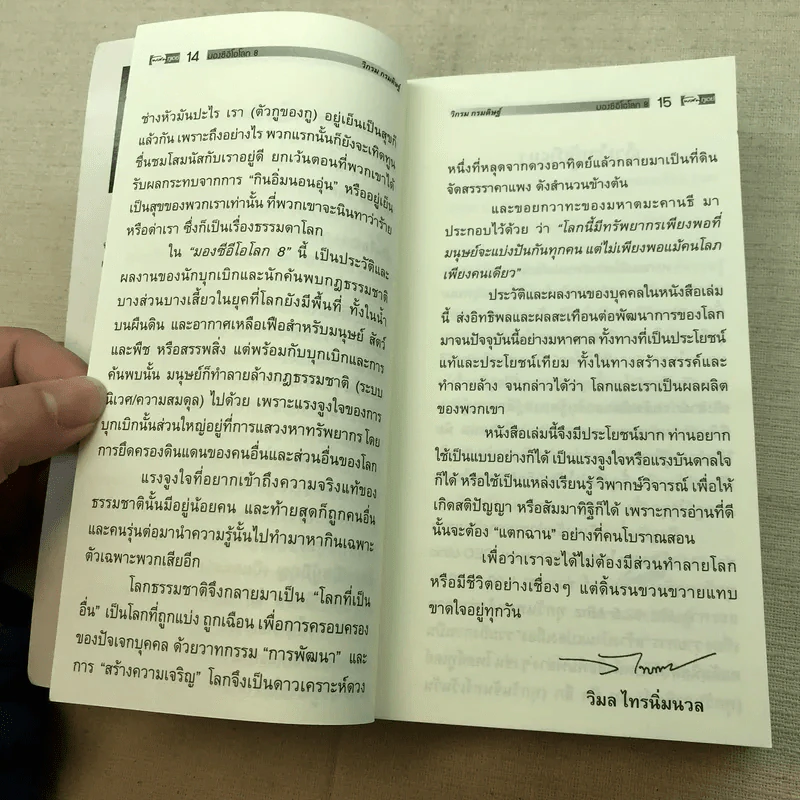 14 มองซีอีโอโลก 8
วิกรม กรมดิษฐ์
ช่างหัวมันปะไร เรา (ตัวกูของกู) อยู่เย็นเป็นสุขก็
แล้วกัน เพราะถึงอย่างไร พวกแรกนั้นก็ยังจะเทิดทูน
ชื่นชมโสมนัสกับเราอยู่ดี ยกเว้นตอนที่พวกเขาได้
รับผลกระทบจากการ “กินอิ่มนอนอุ่น” หรืออยู่เย็น
เป็นสุขของพวกเราเท่านั้น ที่พวกเขาจะนินทาว่าร้าย
หรือด่าเรา ซึ่งก็เป็นเรื่องธรรมดาโลก
ใน “มองซีอีโอโลก 8” นี้ เป็นประวัติและ
ผลงานของนักบุกเบิกและนักค้นพบกฎธรรมชาติ
บางส่วนบางเสี้ยวในยุคที่โลกยังมีพื้นที่ ทั้งในน้ำ
บนผืนดิน และอากาศเหลือเฟือสำหรับมนุษย์ สัตว์
และพืช หรือสรรพสิ่ง แต่พร้อมกับบุกเบิกและการ
ค้นพบนั้น มนุษย์ก็ทำลายล้างกฎธรรมชาติ (ระบบ
นิเวศ/ความสมดุล) ไปด้วย เพราะแรงจูงใจของการ
บุกเบิกนั้นส่วนใหญ่อยู่ที่การแสวงหาทรัพยากร โดย
การยึดครองดินแดนของคนอื่นและส่วนอื่นของโลก
แรงจูงใจที่อยากเข้าถึงความจริงแท้ของ
ธรรมชาตินั้นมีอยู่น้อยคน และท้ายสุดก็ถูกคนอื่น
และคนรุ่นต่อมานำความรู้นั้นไปทำมาหากินเฉพาะ
ตัวเฉพาะพวกเสียอีก
โลกธรรมชาติจึงกลายมาเป็น “โลกที่เป็น
อื่น” เป็นโลกที่ถูกแบ่ง ถูกเฉือน เพื่อการครอบครอง
ของปัจเจกบุคคล ด้วยวาทกรรม “การพัฒนา” และ
การ “สร้างความเจริญ” โลกจึงเป็นดาวเคราะห์ดวง
วิกรม กรมดิษฐ์
มองซีอีโอโลก 8 15
หนึ่งที่หลุดจากดวงอาทิตย์แล้วกลายมาเป็นที่ดิน
จัดสรรราคาแพง ดังสำนวนข้างต้น
และขอยกวาทะของมหาตมะคานธี มา
ประกอบไว้ด้วย ว่า “โลกนี้มีทรัพยากรเพียงพอที่
มนุษย์จะแบ่งปันกันทุกคน แต่ไม่เพียงพอแม้คนโลภ
เพียงคนเดียว”
ประวัติและผลงานของบุคคลในหนังสือเล่ม
นี้ ส่งอิทธิพลและผลสะเทือนต่อพัฒนาการของโลก
มาจนปัจจุบันนี้อย่างมหาศาล ทั้งทางที่เป็นประโยชน์
แท้และประโยชน์เทียม ทั้งในทางสร้างสรรค์และ
ทำลายล้าง จนกล่าวได้ว่า โลกและเราเป็นผลผลิต
ของพวกเขา
หนังสือเล่มนี้จึงมีประโยชน์มาก ท่านอยาก
ใช้เป็นแบบอย่างก็ได้ เป็นแรงจูงใจหรือแรงบันดาลใจ
ก็ได้ หรือใช้เป็นแหล่งเรียนรู้ วิพากษ์วิจารณ์ เพื่อให้
เกิดสติปัญญา หรือสัมมาทิฐิก็ได้ เพราะการอ่านที่ดี
นั้นจะต้อง “แตกฉาน” อย่างที่คนโบราณสอน
เพื่อว่าเราจะได้ไม่ต้องมีส่วนทำลายโลก
หรือมีชีวิตอย่างเซื่องๆ แต่ดิ้นรนขวนขวายแทบ
ขาดใจอยู่ทุกวัน
วิมล ไทรนิ่มนวล